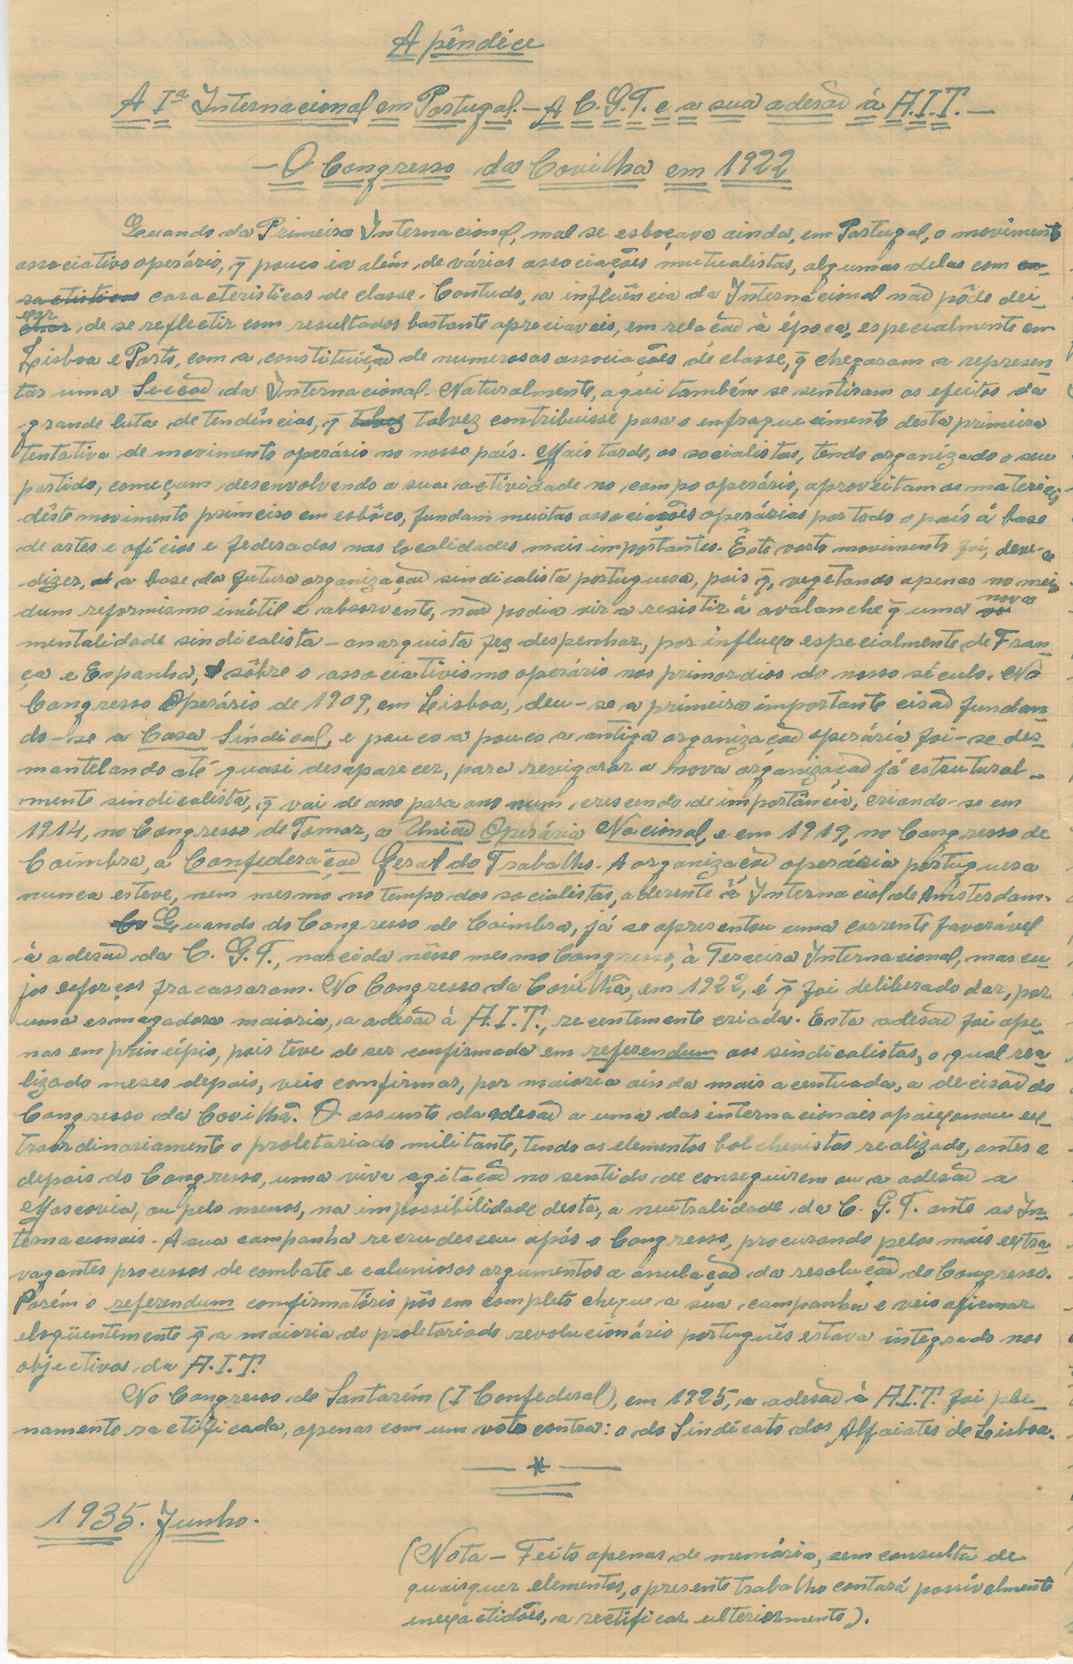 Apêndice
A Iª Internacional em Portugal. – A C.G.T. e a sua adesão á A.I.T. –
– O Congresso da Covilha em 1922
Quando da Primeira Internacional, mal se esboçava ainda, em Portugal, o movimento
associativo operário, q̃ pouco ia além de várias associações mutualistas, algumas delas com
caracteristicas de classe. Contudo, a influência da Internacional não pôde dei-
xar de se reflectir com resultados bastante apreciaveis, em relação à época, especialmente em
Lisboa e Porto, com a constituição de numerosas associações de classe, q̃ chegaram a represen-
tar uma Secção da Internacional. Naturalmente, aqui também se sentiram os efeitos da
grande luta de tendências, q̃ talvez contribuisse para o enfraquecimento desta primeira
tentativa de movimento operário no nosso país. Mais tarde, os socialistas, tendo organizado o seu
partido, começam desenvolvendo a sua actividade no campo operário, aproveitam os materiais
dêste movimento primeiro em esbôço, fundam muitas associações operárias por todo o país á base
de artes e ofícios e federados nas localidades mais importantes. Êste vasto movimento foi, deve-se
dizer, a base da futura organização sindicalista portuguesa, pois q̃, vegetando apenas no meio
dum reformismo inútil e absorvente, não podia vir a resistir á avalanche q̃ uma nova
mentalidade sindicalista-anarquista fez despenhar, por influxo especialmente de Fran-
ça e Espanha, sôbre o associativismo operário nos primordios do nosso século. No
Congresso Operário de 1909, em Lisboa, deu-se a primeira importante cisão fundan-
do-se a Casa Sindical, e pouco a pouco a antiga organização operária foi-se des-
mantelando até quasi desaparecer, para revigorar a nova organização já estrutural-
mente sindicalista, q̃ vai de ano para ano num crescendo de importância, criando-se em
1914, no Congresso de Tomar, a União Operária Nacional, e em 1919, no Congresso de
Coimbra, a Confederação Geral do Trabalho. A organização operária portuguesa
nunca esteve, nem mesmo no tempo dos socialistas, aderente á Internacial de Amsterdam.
Quando do Congresso de Coimbra, já se apresentou uma corrente favorável
à adesão da C.G.T., nascida nêsse mesmo Congresso, à Terceira Internacional, mas cu-
jos esforços fracassaram. No Congresso da Covilhã, em 1922, é q̃ foi deliberado dar, por
uma esmagadora maioria, a adesão à A.I.T., recentemente criada. Esta adesão foi ape-
nas em princípio, pois teve de ser confirmada em referendum aos sindicalistas, o qual rea-
lizado meses depois, veio confirmar, por maioria ainda mais acentuada, a decisão do
Congresso da Covilhã. O assunto da adesão a uma das internacionais apaixonou ex-
traordinariamente o proletariado militante, tendo os elementos bolchevistas realizado, antes e
depois do Congresso, uma viva agitação no sentido de conseguirem ou a adesão a
Moscovia, ou pelo menos, na impossibilidade desta, a neutralidade da C.G.T. ante as In-
ternacionais. A sua campanha recrudesceu após o Congresso, procurando pelos mais extra-
vagantes processos de combate e caluniosos argumentos a anulação da resolução do Congresso.
Porém o referendum confirmatório pôs em completo cheque a sua campanha e veio afirmar
eloqüentemente q̃ a maioria do proletariado revolucionário português estava integrado nos
objectivos da A.I.T.
No Congresso de Santarém (I Confederal), em 1925, a adesão à A.I.T. foi ple-
namente ractificada, apenas com um voto contra: o do Sindicato dos Alfaiates de Lisboa.
— * —
1935. Junho.
(Nota – Feito apenas de memória, sem consulta de
quaisquer elementos, o presente trabalho contará possívelmente
inexactidões, a rectificar ulteriormente).